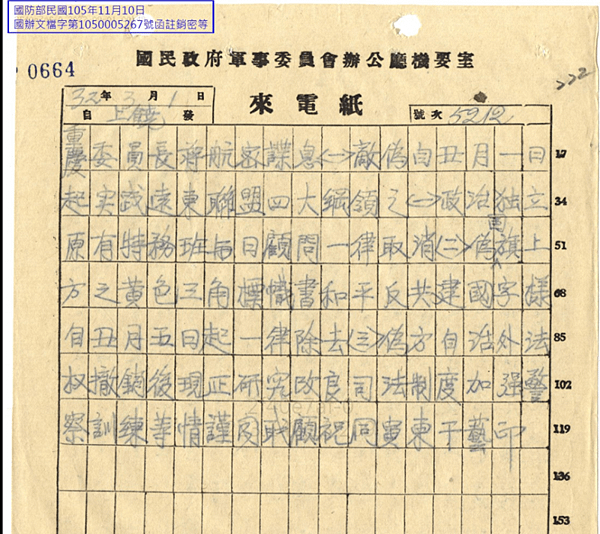 國防部民國105年11月10日
國辦文檔字第1050005267號函註銷密等
0664
國民政府軍事委員會辦公廳機要室
32年3月1日
自上饒發
來電紙
號次 5212
重慶委員長蔣航密諜息(一)敵偽自丑月一日 17
起实踐遠東聯盟四大綱領之(一)政治独立 34
原有特務班与日顧問一律取消(二)偽國旗上 51
方之黃色三角標幟書和平反共建國字樣 68
自丑月五日起一律除去(三)偽方自治外法 85
权撤銷後現正研究改良司法制度加强警 102
察訓練等情謹聞職顧祝同寅東干藝印 119
136
153